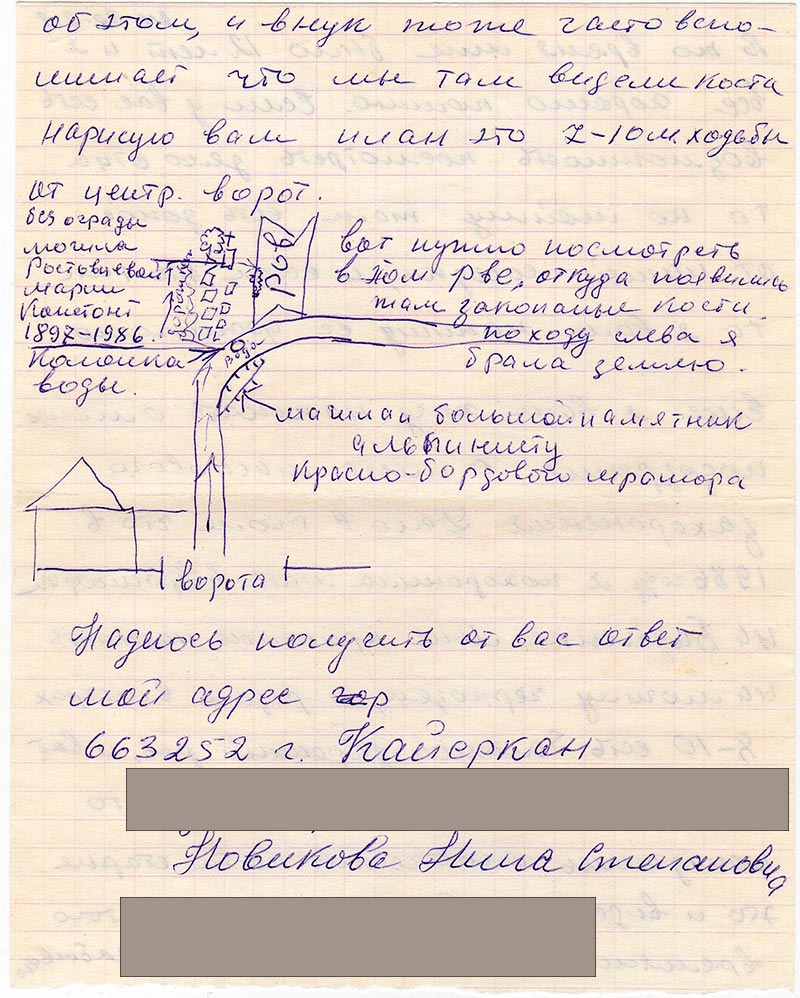 об этом, и внук тоже часто вспо-
минает что мы там видели кости
нарисую вам план это 7-10 м. ходьбы
от центр. ворот.
без ограды
могила
Ростовцевой
Марии
Констонт
1897-1986.
Колонка
воды.
дорожка
РОВ
вода
вот нужно посмотреть
в этом рве, откуда появились
там закопаные кости.
походу слева я
брала землю.
могила и большой памятник
альпинисту
красно-бордового мрамора
ворота
Надеюсь получить от вас ответ
мой адрес
663252 г. Кайеркан
Новикова Нина Степановна